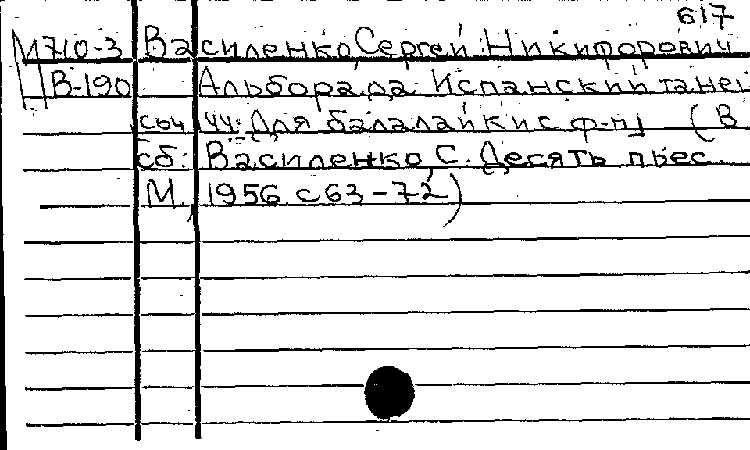 617
М710-3 Василенко, Сергей Никифорович
В-190 Альборада. Испанский танец
соч 44. Для балалайки с ф-п] (В
сб: Василенко, С. Десять пьес.
М, 1956. с 63-72)